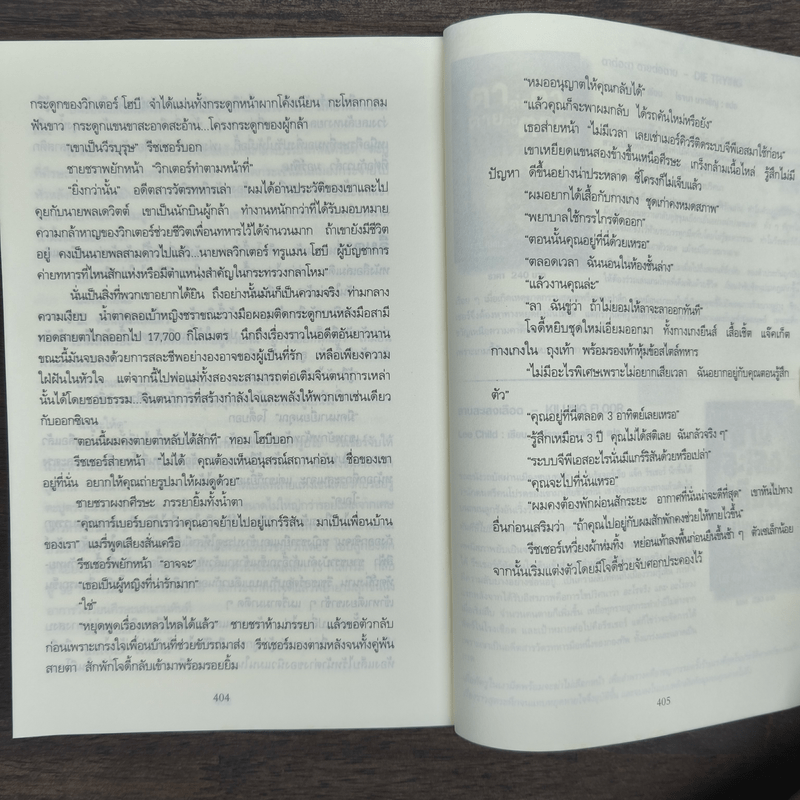 กระดูกของวิกเตอร์ โฮบี จำได้แม่นทั้งกระดูกหน้าผากโค้งเนียน กะโหลกกลม
ฟันขาว กระดูกแขนขาสะอาดสะอ้าน...โครงกระดูกของผู้กล้า
"เขาเป็นวีรบุรุษ" รีชเชอร์บอก
ชายชราพยักหน้า "วิกเตอร์ทำตามหน้าที่"
"ยิ่งกว่านั้น" อดีตสารวัตรทหารเล่า "ผมได้อ่านประวัติของเขาและไป
คุยกับนายพลเดวิตต์ เขาเป็นนักบินผู้กล้า ทำงานหนักกว่าที่ได้รับมอบหมาย
ความกล้าหาญของวิกเตอร์ช่วยชีวิตเพื่อนทหารไว้ได้จำนวนมาก ถ้าเขายังมีชีวิต
อยู่ คงเป็นนายพลสามดาวไปแล้ว...นายพลวิกเตอร์ ทรูแมน โฮบี ผู้บัญชาการ
ค่ายทหารที่ไหนสักแห่งหรือมีตำแหน่งสำคัญในกระทรวงกลาโหม"
นั่นเป็นสิ่งที่พวกเขาอยากได้ยิน ถึงอย่างนั้นมันก็เป็นความจริง ท่ามกลาง
ความเงียบ น้ำตาคลอเบ้าหญิงชราขณะวางมือผอมติดกระดูกบนหลังมือสามี
ทอดสายตาไกลออกไป 17,700 กิโลเมตร นึกถึงเรื่องราวในอดีตอันยาวนาน
ขณะนี้มันจบลงด้วยการสละชีพอย่างองอาจของผู้เป็นที่รัก เหลือเพียงความ
ใฝ่ฝันในหัวใจ แต่จากนี้ไปพ่อแม่ทั้งสองจะสามารถต่อเติมจินตนาการเหล่า
นั้นได้โดยชอบธรรม...จินตนาการที่สร้างกำลังใจและพลังให้พวกเขาเช่นเดียว
กับออกซิเจน
"ตอนนี้ผมคงตายตาหลับได้สักที" ทอม โฮบีบอก
รีชเชอร์ส่ายหน้า "ไม่ได้ คุณต้องเห็นอนุสรณ์สถานก่อน ชื่อของเขา
อยู่ที่นั่น อยากให้คุณถ่ายรูปมาให้ผมดูด้วย"
ชายชราผงกศีรษะ ภรรยายิ้มทั้งน้ำตา
"คุณการ์เบอร์บอกเราว่าคุณอาจย้ายไปอยู่แกร์ริสัน มาเป็นเพื่อนบ้าน
ของเรา" แมรี่พูดเสียงสั่นเครือ
รีชเชอร์พยักหน้า "อาจจะ"
"เธอเป็นผู้หญิงที่น่ารักมาก"
"ใช่"
"หยุดพูดเรื่องเหลวไหลได้แล้ว" ชายชราห้ามภรรยา แล้วขอตัวกลับ
ก่อนเพราะเกรงใจเพื่อนบ้านที่ช่วยขับรถมาส่ง รีชเชอร์มองตามหลังจนทั้งคู่พ้น
สายตา สักพักโจดี้กลับเข้ามาพร้อมรอยยิ้ม
404
"หมออนุญาตให้คุณกลับได้"
"แล้วคุณก็จะพาผมกลับ ได้รถคันใหม่หรือยัง"
เธอส่ายหน้า "ไม่มีเวลา เลยเช่าเมอร์คิวรีติดระบบจีพีเอสมาใช้ก่อน"
เขาเหยียดแขนสองข้างขึ้นเหนือศีรษะ เกร็งกล้ามเนื้อไหล่ รู้สึกไม่มี
ปัญหา ดีขึ้นอย่างน่าประหลาด ซี่โครงก็ไม่เจ็บแล้ว
"ผมอยากได้เสื้อกับกางเกง ชุดเก่าคงหมดสภาพ"
"พยาบาลใช้กรรไกรตัดออก"
"ตอนนั้นคุณอยู่ที่นี่ด้วยเหรอ"
"ตลอดเวลา ฉันนอนในห้องชั้นล่าง"
"แล้วงานคุณล่ะ"
"ลา ฉันขู่ว่า ถ้าไม่ยอมให้ลาจะลาออกทันที"
โจดี้หยิบชุดใหม่เอี่ยมออกมา ทั้งกางเกงยีนส์ เสื้อเชิ้ต แจ๊คเก็ต
กางเกงใน ถุงเท้า พร้อมรองเท้าหุ้มข้อสไตล์ทหาร
"ไม่มีอะไรพิเศษเพราะไม่อยากเสียเวลา ฉันอยากอยู่กับคุณตอนรู้สึก
ตัว"
"คุณอยู่ที่นี่ตลอด 3 อาทิตย์เลยเหรอ"
"รู้สึกเหมือน 3 ปี คุณไม่ได้สติเลย ฉันกลัวจริง ๆ"
"ระบบจีพีเอสอะไรนั่นมีแกร์ริสันด้วยหรือเปล่า"
"คุณจะไปที่นั่นเหรอ"
"ผมคงต้องพักผ่อนสักระยะ อากาศที่นั่นน่าจะดีที่สุด" เขาหันไปทาง
อื่นก่อนเสริมว่า "ถ้าคุณไปอยู่กับผมสักพักคงช่วยให้หายไวขึ้น"
รีชเชอร์เหวี่ยงผ้าห่มทิ้ง หย่อนเท้าลงพื้นก่อนยืนขึ้นช้า ๆ ตัวเซเล็กน้อย
จากนั้นเริ่มแต่งตัวโดยมีโจดี้ช่วยจับศอกประคองไว้
405